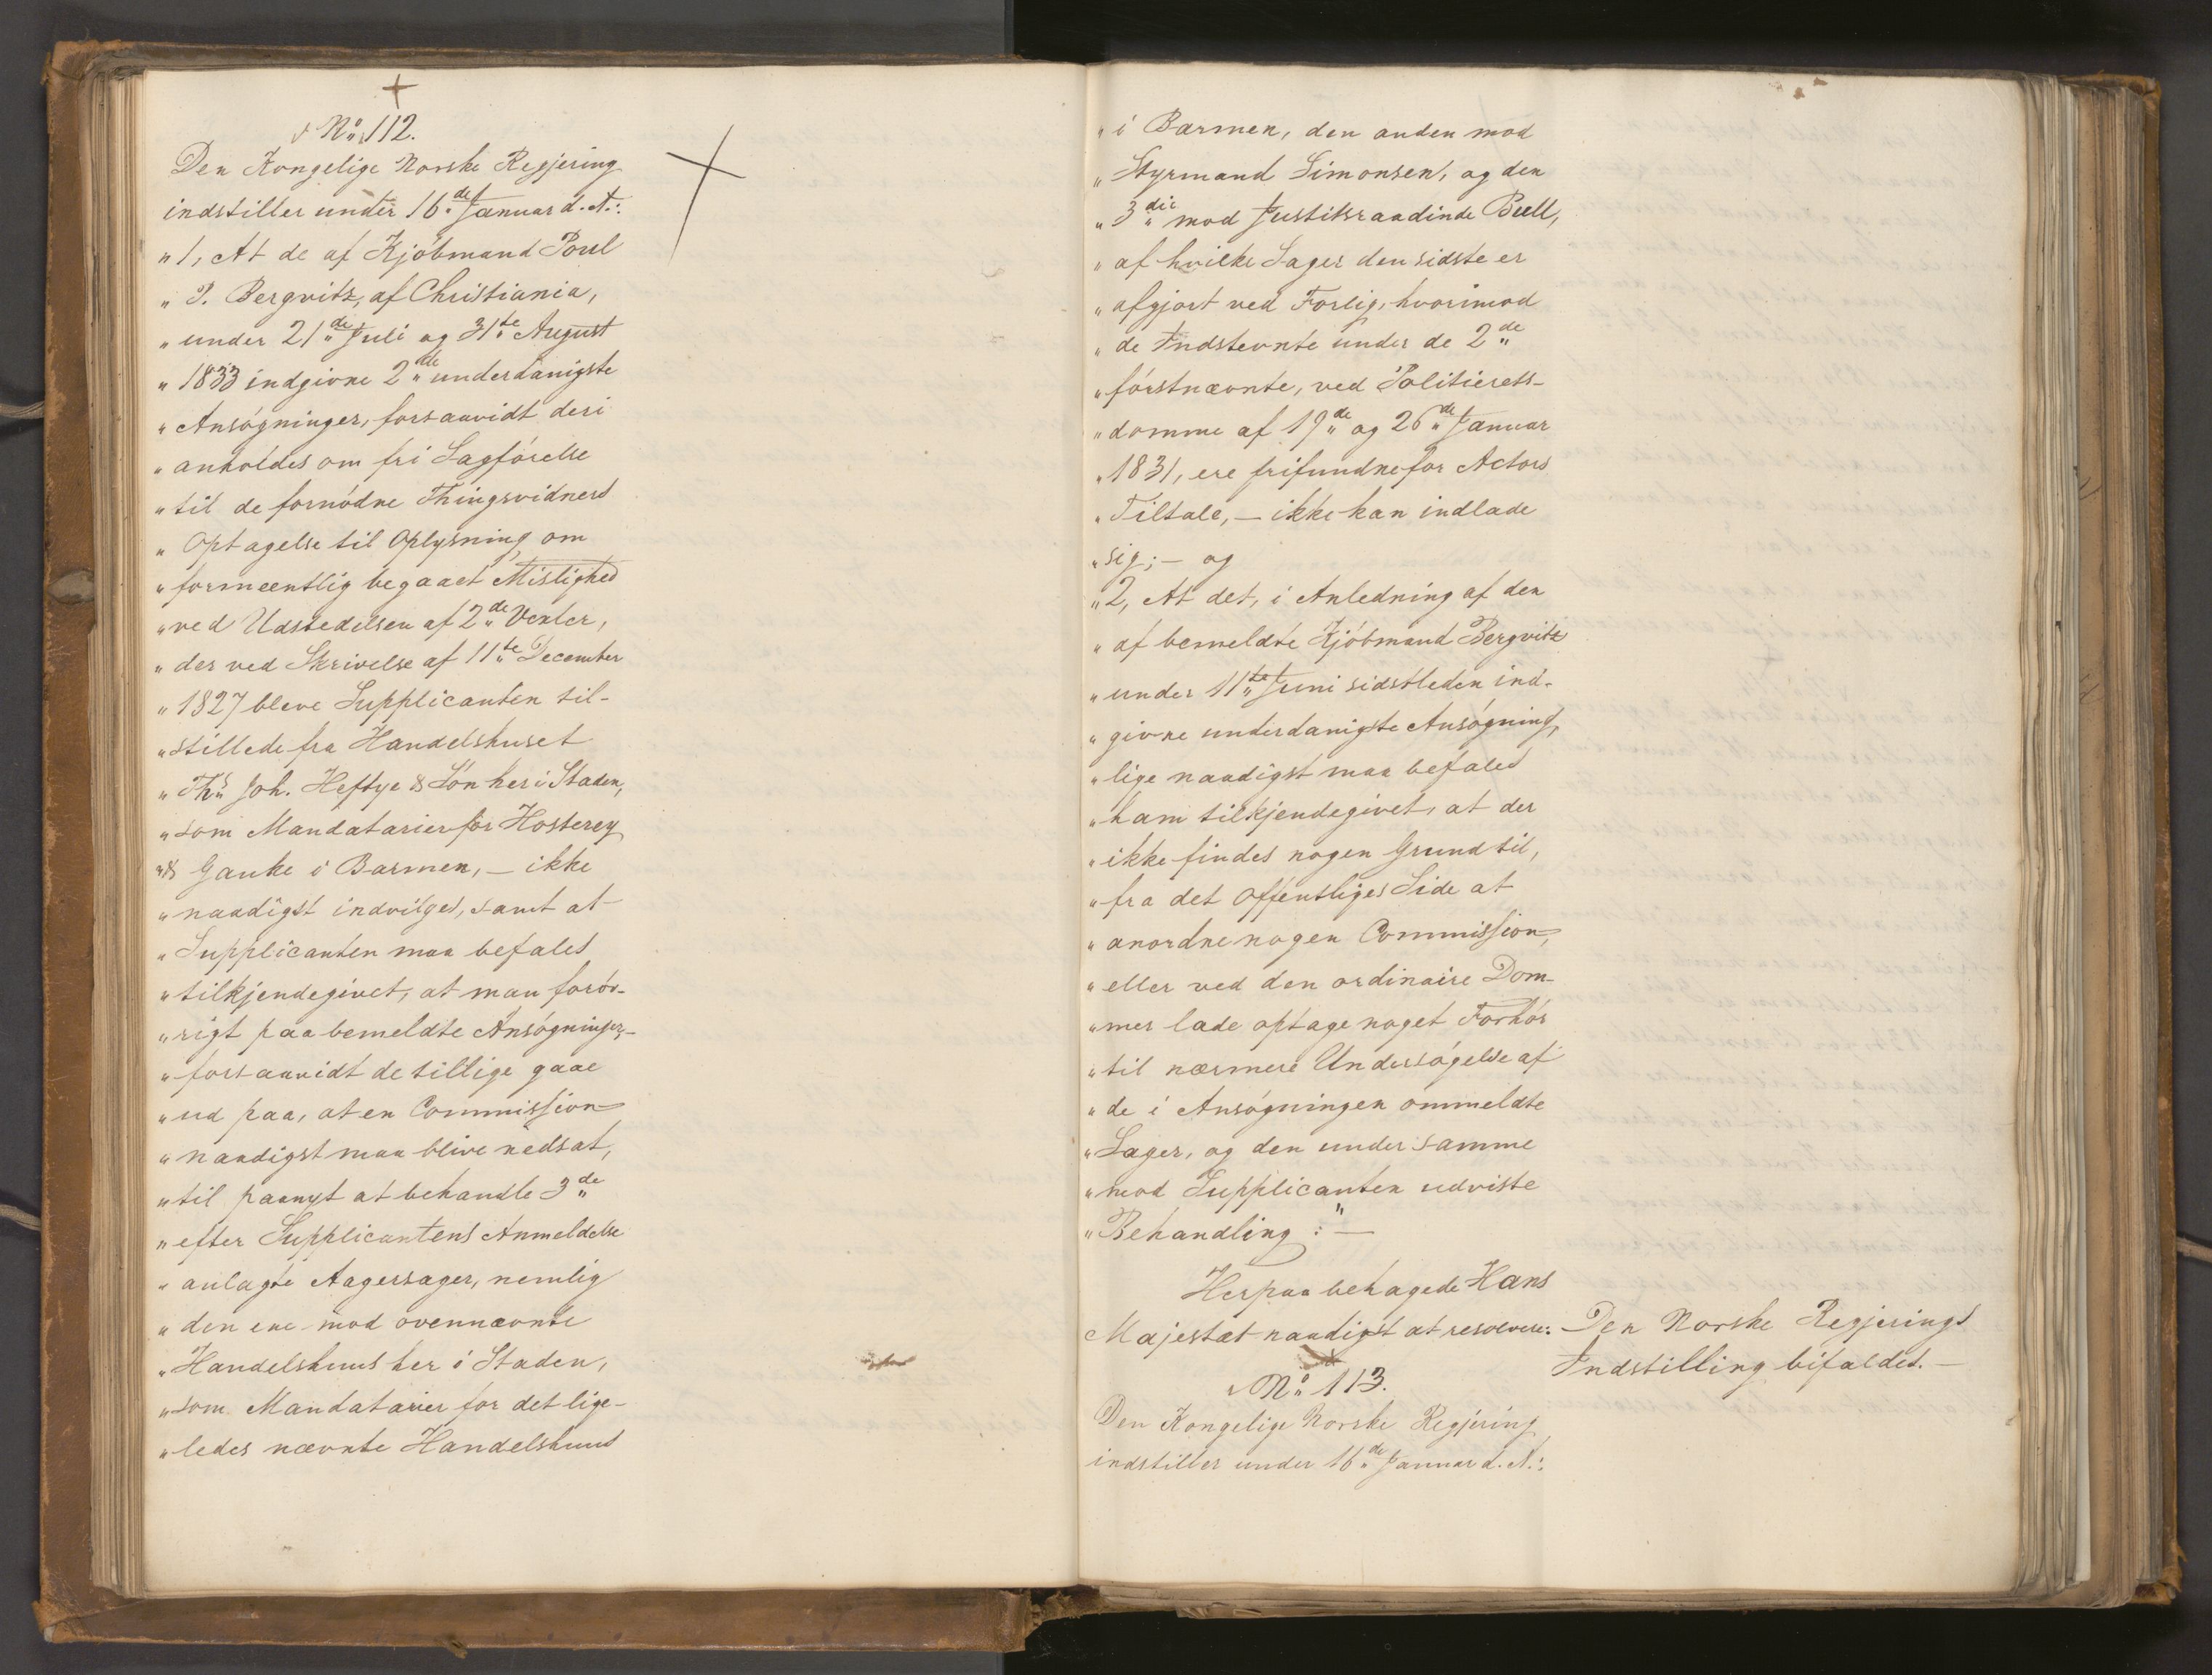 No 112.
Den Kongelige Norske Regjering
indstiller under 16de Januar d. A.:
" 1, At de af Kjöbmand Poul
" P. Bergvitz, af Christiania,
" under 21de Juli og 31te August
" 1833 indgivne 2de underdanigste
" Ansögninger, forsaavidt deri
" anholdes om fri Sagförelse
" til de fornödne Thingsvidners
" Optagelse til Oplysning om
" formeentlig begaaet Mislighed
" ved Udstedelsen af 2de Vexler,
" der ved Skrivelse af 11te December
" 1827 bleve Supplicanten til-
" stillede fra Handelshuset
" Ths Joh. Heftye & Sön her i Staden,
" som Mandatarier for Hosterey
" & Ganke i Barmen, – ikke
" naadigst indvilges, samt at
" Supplicanten maa befales
" tilkjendegivet, at man foröv-
" rigt paa bemeldte Ansögninger, –
" forsaavidt de tillige gaae
" ud paa, at en Commission
" naadigst maa blive nedsat,
" til paanyt at behandle 3de
" efter Supplicantens Anmeldelse
" anlagte Aagersager, nemlig
" den ene mod ovennævnte
" Handelshuus her i Staden,
" som Mandatarier for det lige-
" ledes nævnte Handelshuus
" i Barmen, den anden mod
" Styrmand Simonsen, og den
" 3die mod Justitsraadinde Bull,
" af hvilke Sager den sidste er
" afgjort ved Forlig, hvorimod
" de Indstevnte under de 2de
" förstnævnte, ved Politierets-
" domme af 19de og 26de Januar
" 1831, ere frifundne for Actors
" Tiltale, – ikke kan indlade
" sig; – og
" 2, At det, i Anledning af den
" af bemeldte Kjöbmand Bergvitz
" under 11te Juni sidstleden ind-
" givne underdanigste Ansögning,
" lige naadigst maa befales
" ham tilkjendegivet, at der
" ikke findes nogen Grund til,
" fra det Offentliges Side at
" anordne nogen Commission,
" eller ved den ordinaire Dom-
" mer lade optage noget Forhör
" til nærmere Undersögelse af
" de i Ansögningen ommeldte
" Sager, og den under samme
" mod Supplicanten udviste
" Behandling:" –
Herpaa behagede Hans
Majestæt naadigst at resolvere:
Den Norske Regjerings
Indstilling bifaldes. –
No 113.
Den Kongelige Norske Regjering
indstiller under 16de Januar d. A.: